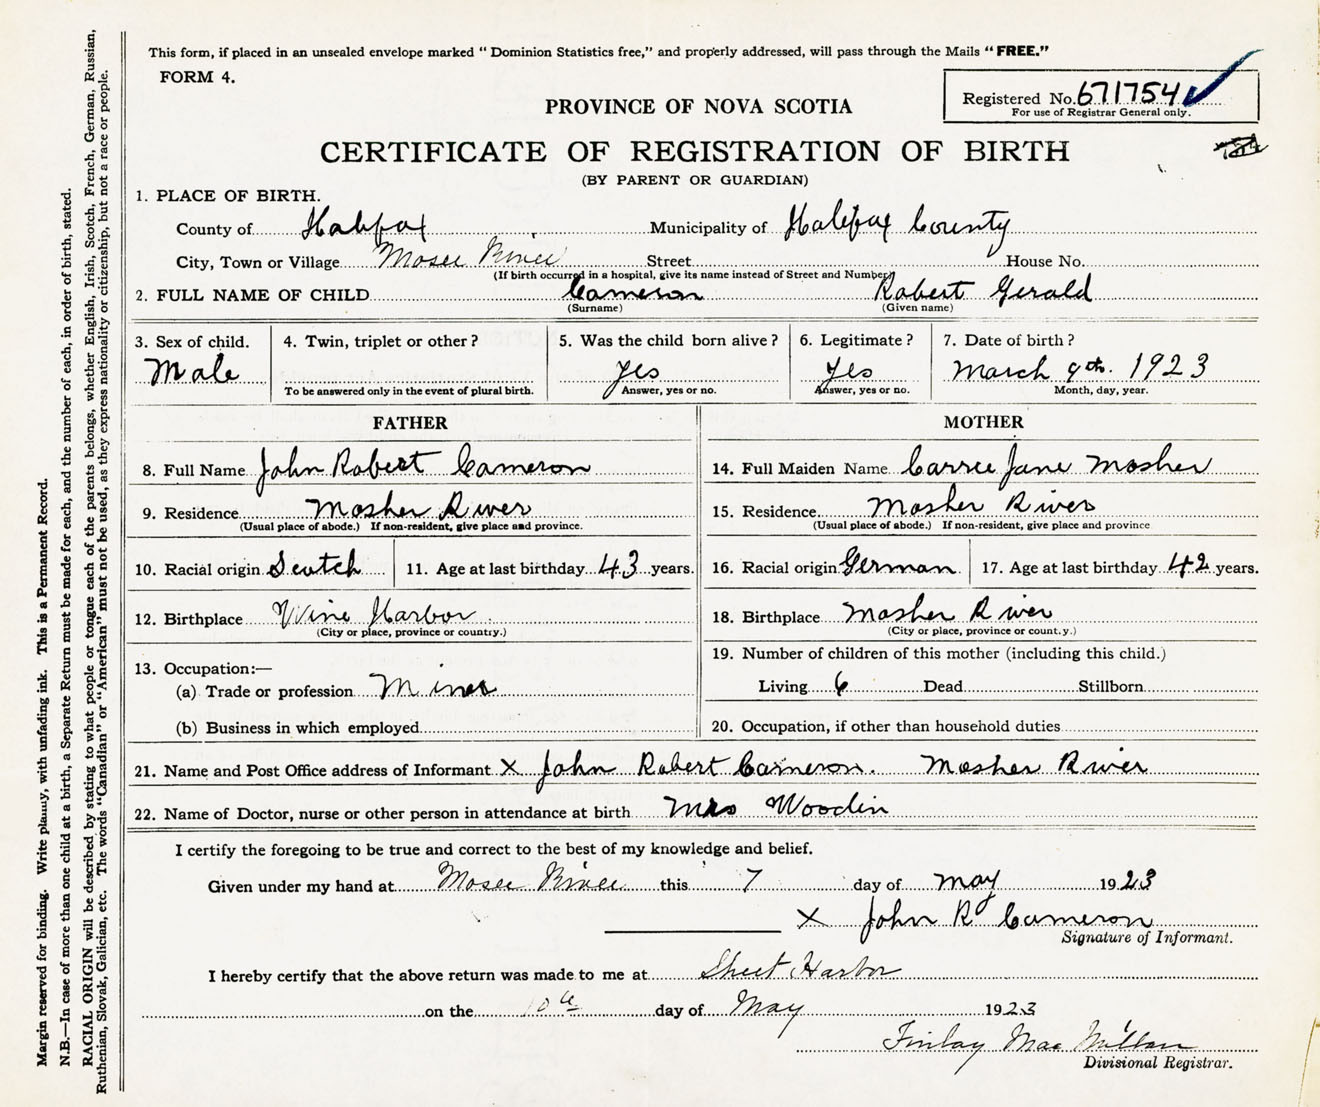 This form, if placed in an unsealed envelope marked "Dominion Statistics free," and properly addressed, will pass through the Mails "FREE."
FORM 4.
Registered No. 671754
For use of Registrar General only.
PROVINCE OF NOVA SCOTIA
CERTIFICATE OF REGISTRATION OF BIRTH
(BY PARENT OR GUARDIAN)
1. PLACE OF BIRTH.
County of Halifax Municipality of Halifax County
City, Town or Village Moser River Street House No.
(If birth occurred in a hospital, give its name instead of Street and Number)
2. FULL NAME OF CHILD Cameron Robert Gerald
(Surname) (Given name)
3. Sex of child. 4. Twin, triplet or other? 5. Was the child born alive? 6. Legitimate? 7. Date of birth?
Male Yes Yes March 9th. 1923
To be answered only in the event of plural birth. Answer, yes or no. Answer, yes or no. Month, day, year.
FATHER
8. Full Name John Robert Cameron
9. Residence Mosher River
(Usual place of abode.) If non-resident, give place and province.
10. Racial origin Scotch 11. Age at last birthday 43 years.
12. Birthplace Wine Harbor
(City or place, province or country.)
13. Occupation:—
(a) Trade or profession Miner
(b) Business in which employed
MOTHER
14. Full Maiden Name Carrie Jane Mosher
15. Residence Mosher River
(Usual place of abode.) If non-resident, give place and province
16. Racial origin German 17. Age at last birthday 42 years.
18. Birthplace Mosher River
(City or place, province or country.)
19. Number of children of this mother (including this child.)
Living 6 Dead Stillborn
20. Occupation, if other than household duties
21. Name and Post Office address of Informant X John Robert Cameron. Mosher River
22. Name of Doctor, nurse or other person in attendance at birth Mrs Woodin
I certify the foregoing to be true and correct to the best of my knowledge and belief.
Given under my hand at Moser River this 7 day of May 1923
X John R Cameron
Signature of Informant.
I hereby certify that the above return was made to me at Sheet Harbor
on the 10th day of May 1923
Finlay MacMillan
Divisional Registrar.
Margin reserved for binding. Write plainly, with unfading ink. This is a Permanent Record.
N.B.—In case of more than one child at a birth, a Separate Return must be made for each, and the number of each, in order of birth, stated.
RACIAL ORIGIN will be described by stating to what people or tongue each of the parents belongs, whether English, Irish, Scotch, French, German, Russian,
Ruthenian, Slovak, Galician, etc. The words "Canadian" or "American" must not be used, as they express nationality or citizenship, but not a race or people.